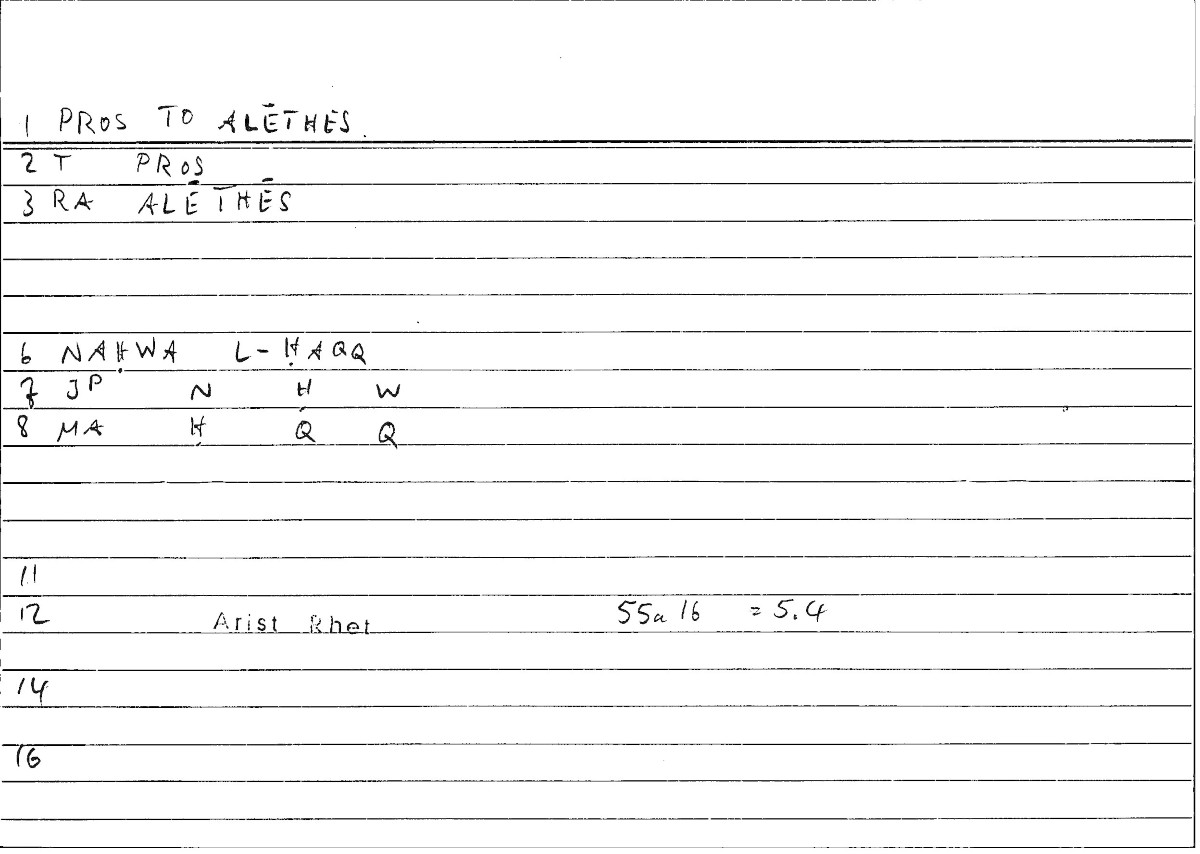 1 PROS TO ALĒTHES.
2 T PROS
3 RA ALĒTHĒS
6 NAḤWA L-ḤAQQ
7 JP N Ḥ W
8 MA Ḥ Q Q
11
12 Arist Rhet 55a 16 = 5.4
14
16